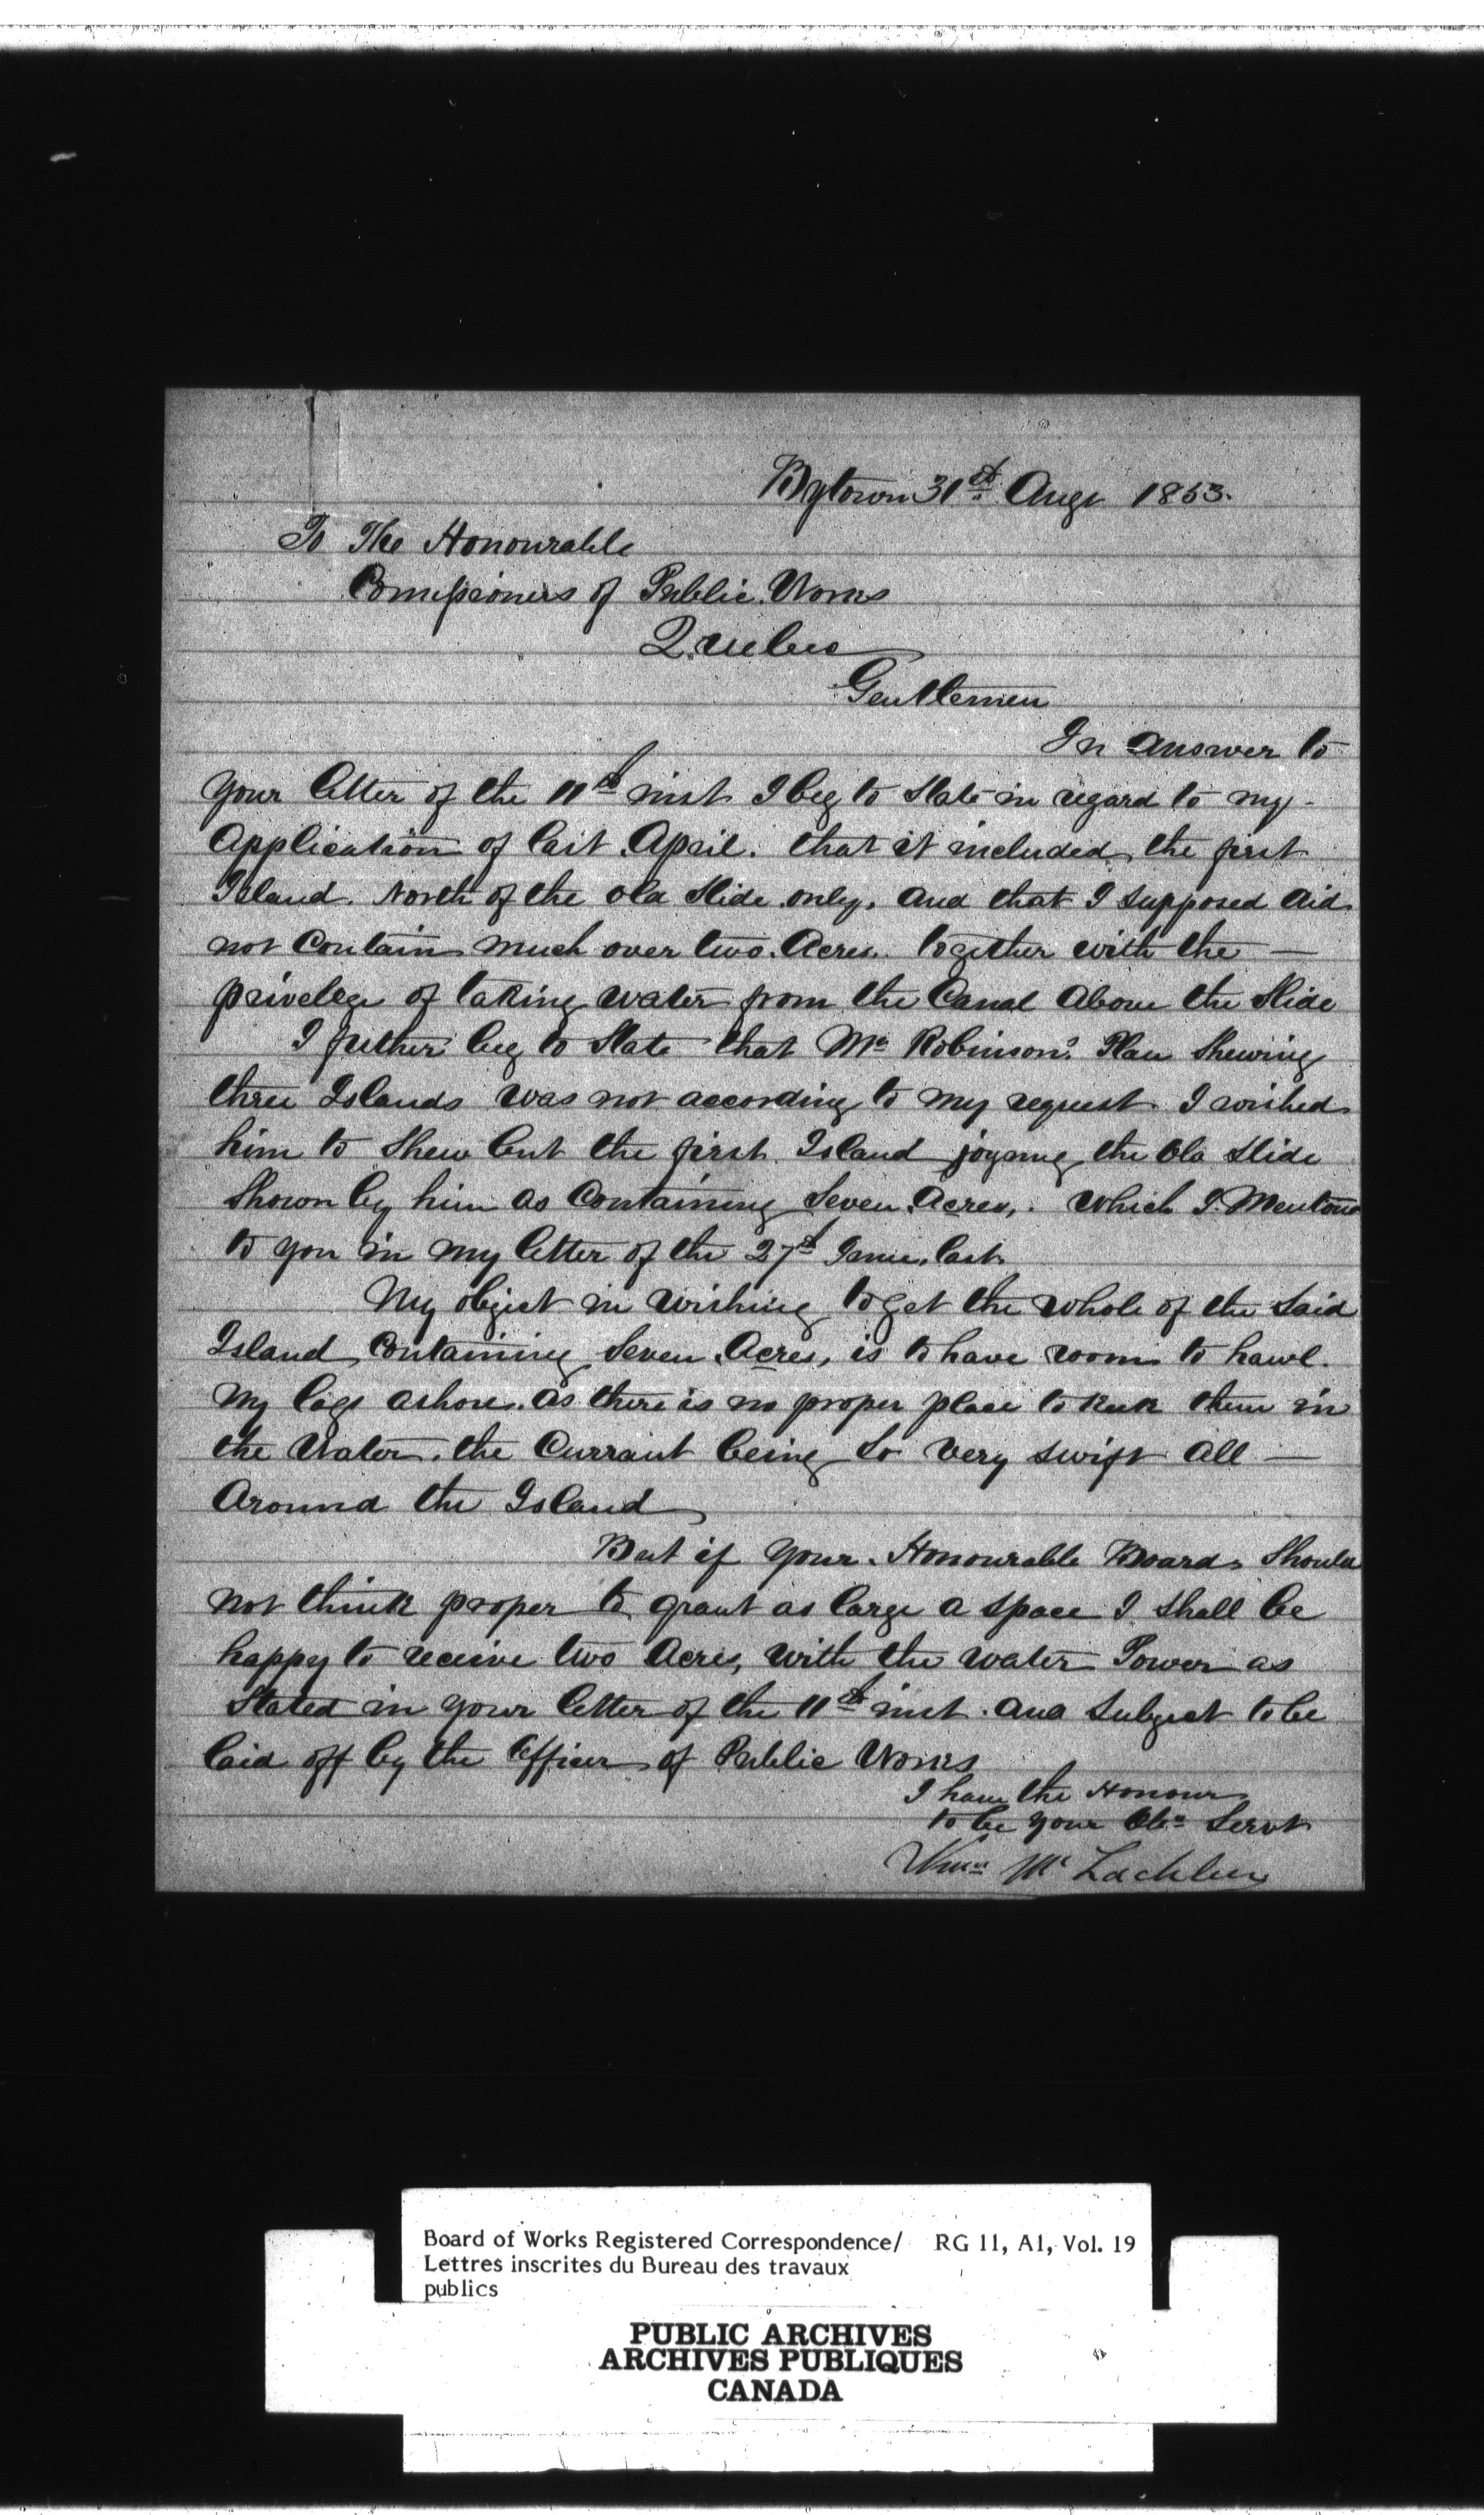 Bytown 31st Augt 1853.
To The Honourable
Commissioners of Public Works
Quebec
Gentlemen
In answer to
your letter of the 11th inst I beg to State in regard to my
Application of last April. that it included the first
Island. North of the old Slide only. And that I supposed did
not Contain much over two Acres. together with the —
privelege of taking water from the Canal Above the Slide
I futher beg to State that Mr Robinsons Plan Shewing
three Islands was not according to my request I wished
him to Shew but the first Island joyning the Old Slide
Shown by him as Containing Seven Acres, which I Mentoned
to you in my letter of the 27th June last
My object in wishing to get the whole of the Said
Island Containing Seven Acres, is to have room to hawl
my logs ashore. as there is no proper place to keek them in
the Water. the Currant being So very swift all —
Around the Island
But if your Honourable Board Should
not think proper to grant as large a space I shall be
happy to receive two Acres, with the water Power as
Stated in your letter of the 11th inst. and Subject to be
laid off by the Officer of Public Works
I have the Honour
to be your Obt Servt
Wm Mc Lachlin
Board of Works Registered Correspondence/ RG 11, A1, Vol. 19
Lettres inscrites du Bureau des travaux
publics
PUBLIC ARCHIVES
ARCHIVES PUBLIQUES
CANADA